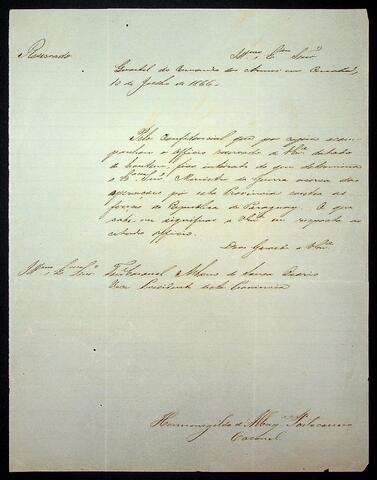 Reservado
Illmo. e Exmo. Senr.
Quartel do Commando das Armas em Cuiabá,
10 de Julho de 1866.
Pela confidencial que por copia acom-
panhou o officio reservado de V. Exa. datado
de hontem, fico inteirado do que determina
o Exmo. Snr. Ministro da Guerra acerca das
operações por esta Provincia contra as
forças da Republica do Paraguay. O que
cabe-me significar a V. Exa. em resposta ao
citado officio.
Deos Guarde a V. Exa.
Illmo. e Exmo. Senr. Tene. Coronel Albano de Souza Osorio
Vice Presidente desta Provincia
Hermenegildo d'Albuqe. Portocarrero
Coronel